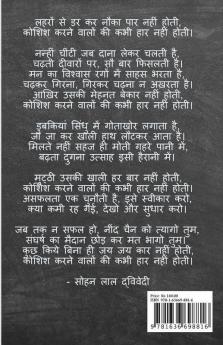 लहरों से डर कर नौका पार नहीं होती,
कोशिश करने वालों की कभी हार नहीं होती।
नन्हीं चींटी जब दाना लेकर चलती है,
चढ़ती दीवारों पर, सौ बार फिसलती है।
मन का विश्वास रगों में साहस भरता है,
चढ़कर गिरना, गिरकर चढ़ना न अखरता है।
आखिर उसकी मेहनत बेकार नहीं होती,
कोशिश करने वालों की कभी हार नहीं होती।
डुबकियां सिंधु में गोताखोर लगाता है,
जा जा कर खाली हाथ लौटकर आता है।
मिलते नहीं सहज ही मोती गहरे पानी में,
बढ़ता दुगना उत्साह इसी हैरानी में।
मुट्ठी उसकी खाली हर बार नहीं होती,
कोशिश करने वालों की कभी हार नहीं होती।
असफलता एक चुनौती है, इसे स्वीकार करो,
क्या कमी रह गई, देखो और सुधार करो।
जब तक न सफल हो, नींद चैन को त्यागो तुम,
संघर्ष का मैदान छोड़ कर मत भागो तुम।
कुछ किये बिना ही जय जय कार नहीं होती,
कोशिश करने वालों की कभी हार नहीं होती।
- सोहन लाल द्विवेदी
9 781636 698816